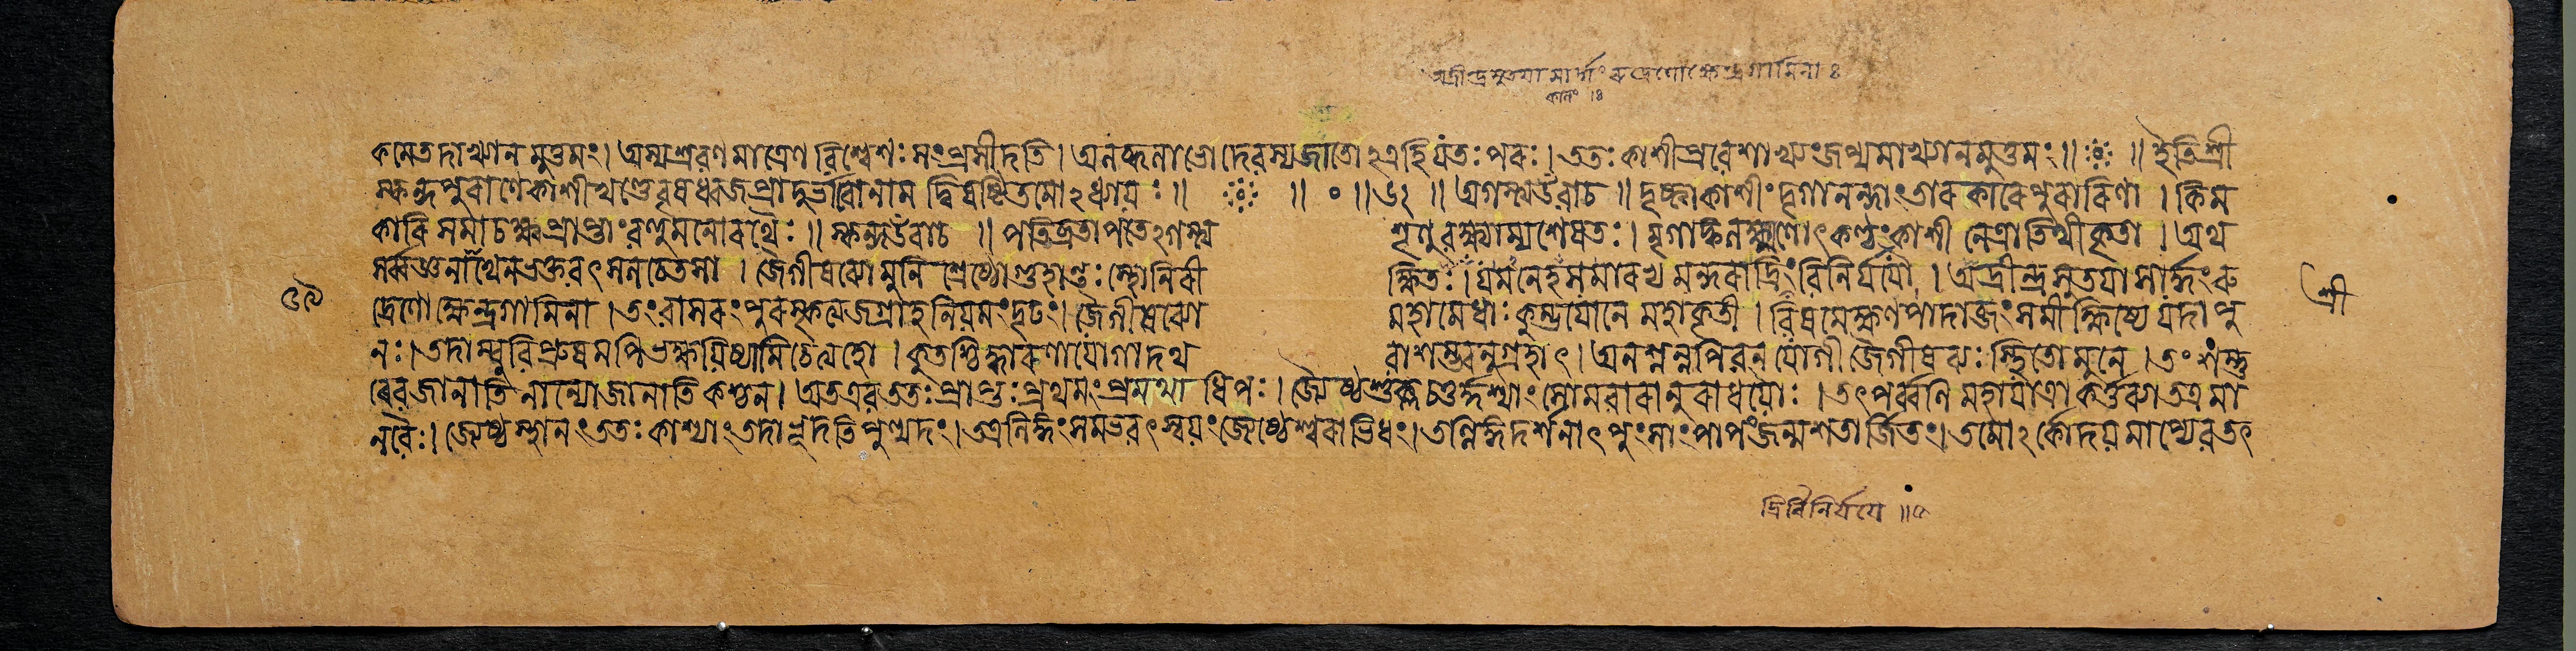 অদ্রীন্দ্রসুতয়া সার্দ্ধং রুদ্রেণোক্ষেন্দ্রগামিনা ঃ
কানং ।ঃ
রুমেতদাখ্যানমুত্তমং । অস্য শ্রবণমাত্রেণ বিশ্বেশঃ সংপ্রসীদতি । পরং । ততঃ কাশীপ্রবেশাখ্যং জপ্যমাখ্যানমুত্তমং ॥ ॥ ইতি শ্রী
স্কন্দপুরাণে কাশীখণ্ডে বৃষধ্বজপ্রাদুর্ভাবো নাম দ্বিষষ্টিতমোঽধ্যায়ঃ ॥ ॥ ০ ॥ ॥ অগস্ত্য উবাচ ॥ দৃষ্ট্বা কাশীং দৃগানন্দাং তারকারে পুরারিণা । কিম
কারি সমাচক্ষ্ব প্রাপ্তাং বহুমনোরথৈঃ ॥ স্কন্দ উবাচ ॥ পতিব্রতাপতেঽগস্ত্য শৃণু বক্ষ্যাম্যশেষতঃ । মৃগাঙ্কলক্ষ্মণোৎকণ্ঠং কাশী নেত্রাতিথীকৃতা । অথ
সর্ব্বজ্ঞনাথেন ভক্তবৎসলচেতসা । জৈগীষব্যো মুনিশ্রেষ্ঠো গুহান্তঃস্থো নিরী ক্ষিতঃ । যমনেহসমারভ্য মন্দরাদ্রিং বিনির্যযৌ । অদ্রীন্দ্রসুতয়া সার্দ্ধং রু
৫৯ দ্রেণোক্ষেন্দ্রগামিনা । তং বাসরং পুরস্কৃত্য জগ্রাহ নিয়মং দৃঢং । জৈগীষব্যো মহামেধাঃ কুম্ভযোনে মহাকৃতী । বিষমেক্ষণপাদাব্জং সমীক্ষিষ্যে যদা পু শ্রী
নঃ । তদাম্বুবিপ্রুষমপি ভক্ষয়িষ্যামি চেত্যহো । কুতশ্চিদ্ধারণাযোগাদথ বা শম্ভ্বনুগ্রহাৎ । অনশ্নন্নপিবন্ যোগী জৈগীষব্যঃ স্থিতো মুনে । তং শম্ভু
রেব জানাতি নান্যো জানাতি কশ্চন । অতএব ততঃ প্রাপ্তঃ প্রথমং প্রমথাধিপঃ । জ্যৈষ্ঠশুক্লচতুর্দ্দশ্যাং সোমবারানুরাধয়োঃ । তৎপর্ব্বণি মহাযাত্রা কর্ত্তব্যা তত্র মা
নবৈঃ । জ্যেষ্ঠস্থানং ততঃ কাশ্যাং তদাভূদতিপুণ্যদং । তত্র লিঙ্গং সমভবৎ স্বয়ং জ্যেষ্ঠেশ্বরাভিধং । তল্লিঙ্গদর্শনাৎ পুংসাং পাপং জন্মশতার্জিতং । তমোঽর্কোদয়মাপ্যেব তৎ
দ্রিং বিনির্যযৌ ॥৫